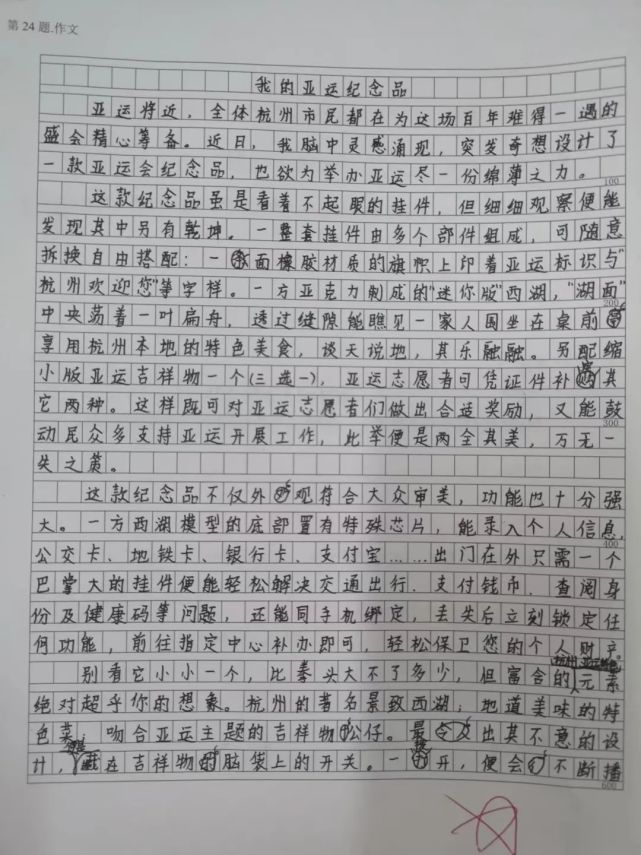 第 24 题.作文
我的亚运纪念品
亚运将近，全体杭州市民都在为这场百年难得一遇的
盛会精心筹备。近日，我脑中灵感涌现，突发奇想设计了
一款亚运会纪念品，也欲为举办亚运尽一份绵薄之力。
100
这款纪念品虽是看着不起眼的挂件，但细细观察便能
发现其中另有乾坤。一整套挂件由多个部件组成，可随意
拆换自由搭配：一面橡胶材质的旗帜上印着亚运标识与"
杭州欢迎您"等字样。一方亚克力制成的"迷你版"西湖，"湖面"
200
中央荡着一叶扁舟，透过缝隙能瞧见一家人围坐在桌前
享用杭州本地的特色美食，谈天说地，其乐融融。另配缩
小版亚运吉祥物一个(三选一)，亚运志愿者可凭证件补其
它两种。这样既可对亚运志愿者们做出合适奖励，又能鼓
300
动民众多支持亚运开展工作，此举便是两全其美，万无一
失之策。
这款纪念品不仅外观符合大众审美，功能也十分强
大。一方西湖模型的底部置有特殊芯片，能录入个人信息，
400
公交卡、地铁卡、银行卡、支付宝……出门在外只需一个
巴掌大的挂件便能轻松解决交通出行、支付钱币、查阅身
份及健康码等问题，还能同手机绑定，丢失后立刻锁定任
何功能，前往指定中心补办即可，轻松保卫您的个人财产。
别看它小小一个，比拳头大不了多少，但富含的元素
绝对超乎你的想象。杭州的著名景致西湖，地道美味的特
色菜，吻合亚运主题的吉祥物公仔。最出其不意的设
计，在吉祥物脑袋上的开关。一开，便会不断播
600